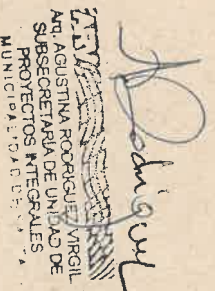 Rodriguez
Arq. AGUSTINA RODRIGUEZ VIRGIL
SUBSECRETARIA DE UNIDAD DE
PROYECTOS INTEGRALES
MUNICIPALIDAD DE